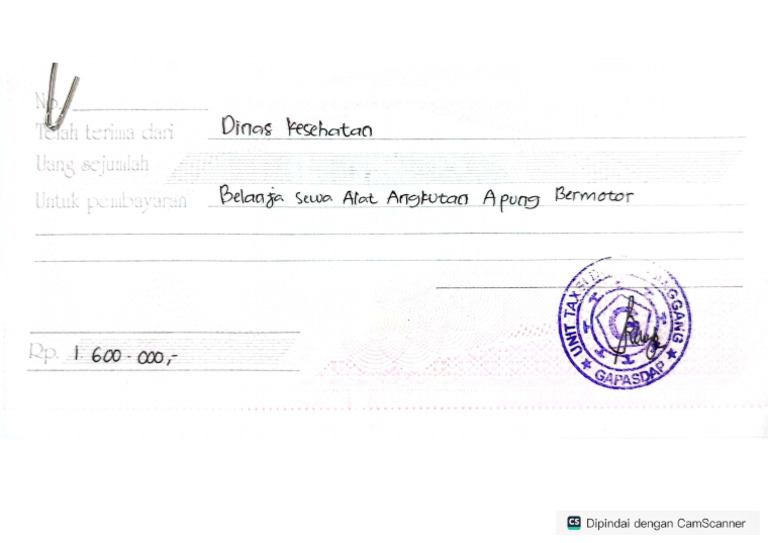 No.
Telah terima dari Dinas Kesehatan
Uang sejumlah
Untuk pembayaran Belanja Sewa Alat Angkutan Apung Bermotor
UNIT TAXSI
GGANG
GAPASDAP
Rp. 1.600.000,-
CS Dipindai dengan CamScanner